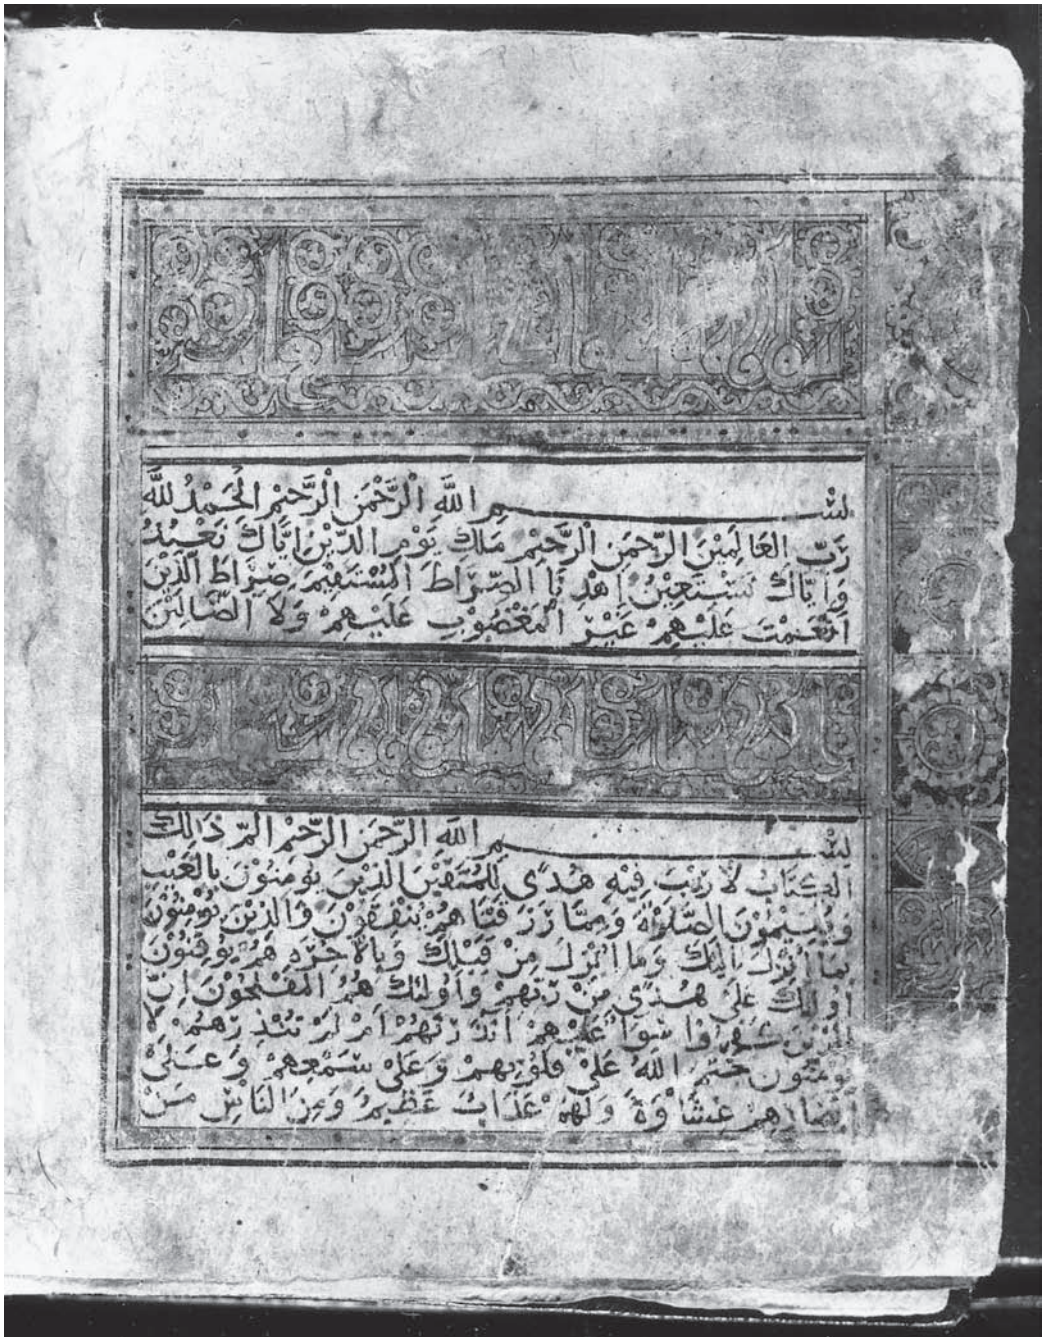 بِسْمِ اللَّهِ الرَّحْمَنِ الرَّحِيمِ الْحَمْدُ لِلَّهِ
رَبِّ الْعَالَمِينَ الرَّحْمَنِ الرَّحِيمِ مَلِكِ يَوْمِ الدِّينِ إِيَّاكَ نَعْبُدُ
وَإِيَّاكَ نَسْتَعِينُ اِهْدِنَا الصِّرَاطَ الْمُسْتَقِيمَ صِرَاطَ الَّذِينَ
أَنْعَمْتَ عَلَيْهِمْ غَيْرِ الْمَغْضُوبِ عَلَيْهِمْ وَلَا الضَّالِّينَ
بِسْمِ اللَّهِ الرَّحْمَنِ الرَّحِيمِ الم ذَالِكَ
الْكِتَابُ لَا رَيْبَ فِيهِ هُدًى لِلْمُتَّقِينَ الَّذِينَ يُؤْمِنُونَ بِالْغَيْبِ
وَيُقِيمُونَ الصَّلَوٰةَ وَمِمَّا رَزَقْنَاهُمْ يُنْفِقُونَ وَالَّذِينَ يُؤْمِنُونَ
بِمَا أُنْزِلَ إِلَيْكَ وَمَا أُنْزِلَ مِنْ قَبْلِكَ وَبِالْآخِرَةِ هُمْ يُوقِنُونَ
أُولَئِكَ عَلَى هُدًى مِنْ رَبِّهِمْ وَأُولَئِكَ هُمُ الْمُفْلِحُونَ إِنَّ
الَّذِينَ كَفَرُوا سَوَاءٌ عَلَيْهِمْ أَأَنْذَرْتَهُمْ أَمْ لَمْ تُنْذِرْهُمْ لَا
يُؤْمِنُونَ خَتَمَ اللَّهُ عَلَى قُلُوبِهِمْ وَعَلَى سَمْعِهِمْ وَعَلَى
أَبْصَارِهِمْ غِشَاوَةٌ وَلَهُمْ عَذَابٌ عَظِيمٌ وَمِنَ النَّاسِ مَنْ